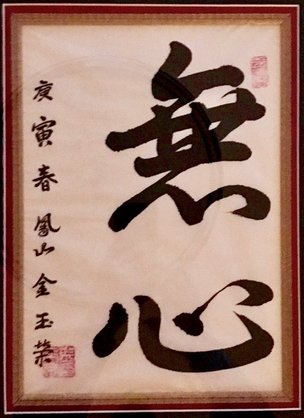 無心
庚寅春鳳山金玉榮